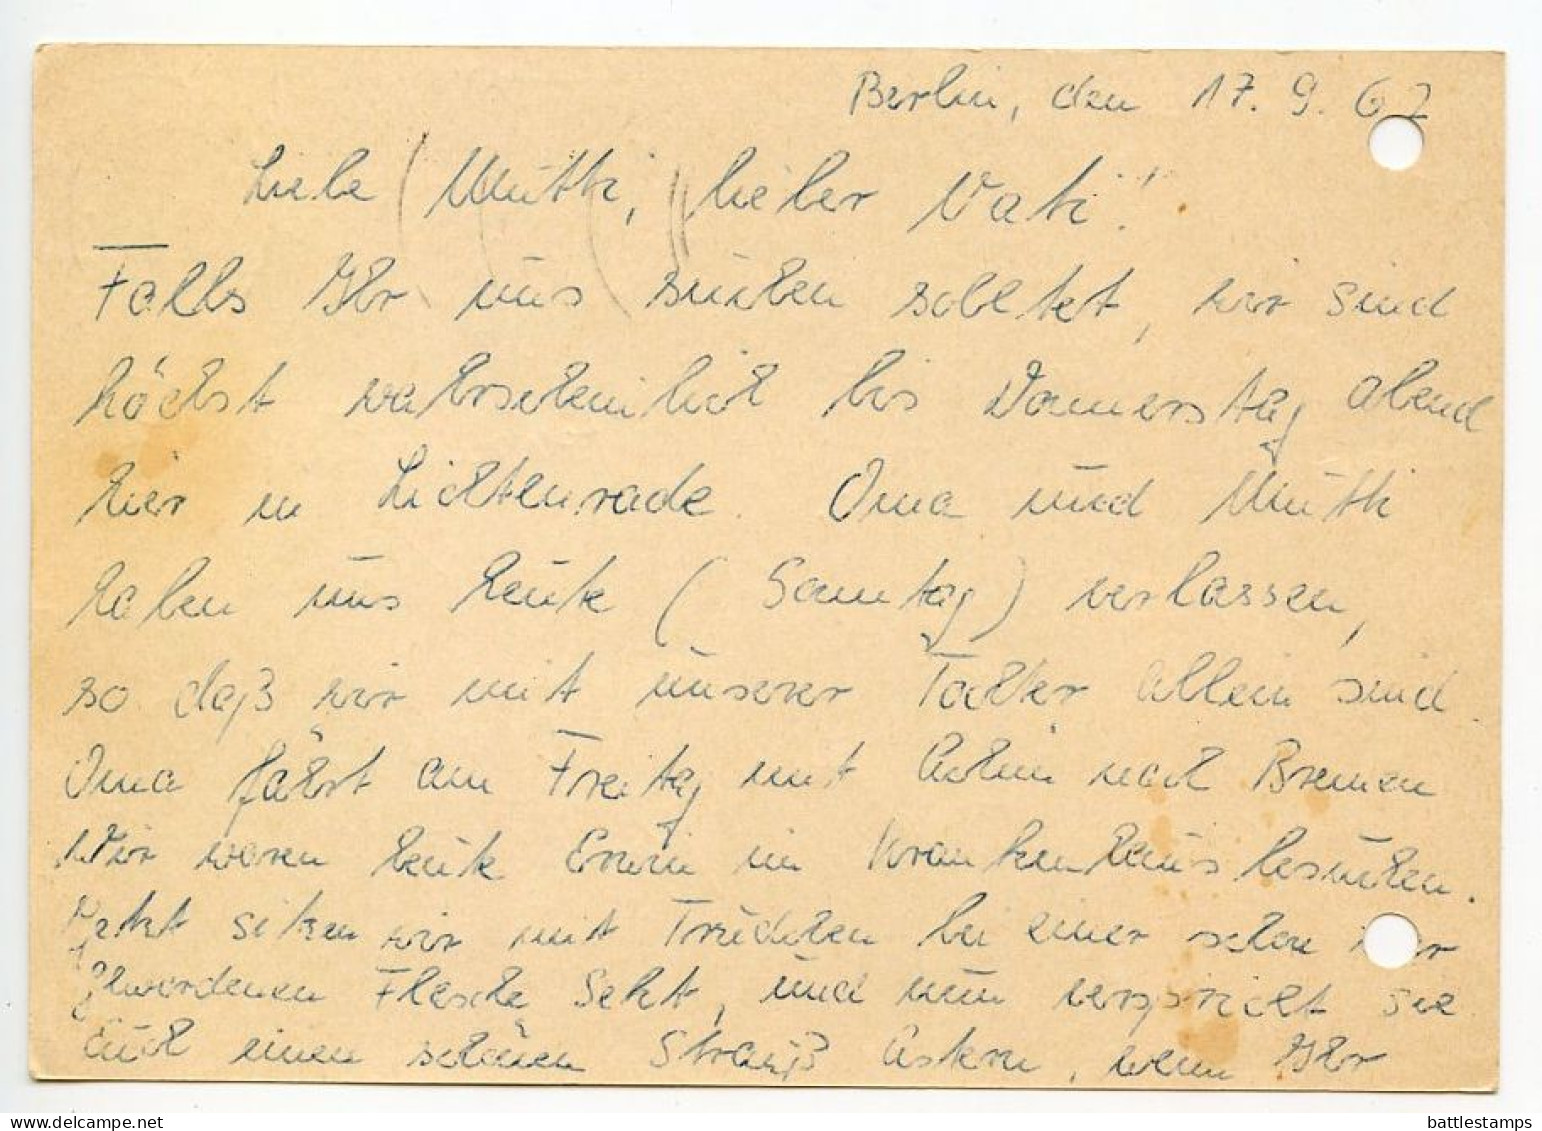 Berlin, den 17. 9. 67
Liebe Mutti, lieber Vati!
Falls Ihr uns suchen solltet, wir sind
höchst wahrscheinlich bis Donnerstag abend
hier in Lichtenrade. Oma und Mutti
haben uns heute (Sonntag) verlassen,
so daß wir mit unserer Tochter allein sind.
Oma fährt am Freitag mit Achim nach Bremen
Wir waren heute Erwin im Krankenhaus besuchen.
Jetzt sitzen wir mit Trudchen bei einer schon
gewordenen Flasche Sekt, und nun verspricht sie
Euch einen schönen Strauß Astern, wenn Ihr
www.delcampe.net
battlestamps